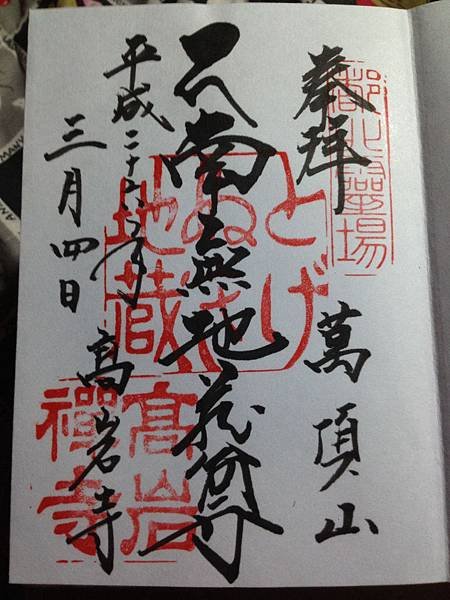 奉拝
都北靈場
萬頂山
南無地蔵尊
とげ
ぬき
地蔵
平成二十六年
三月四日
高岩寺
高岩
禪寺